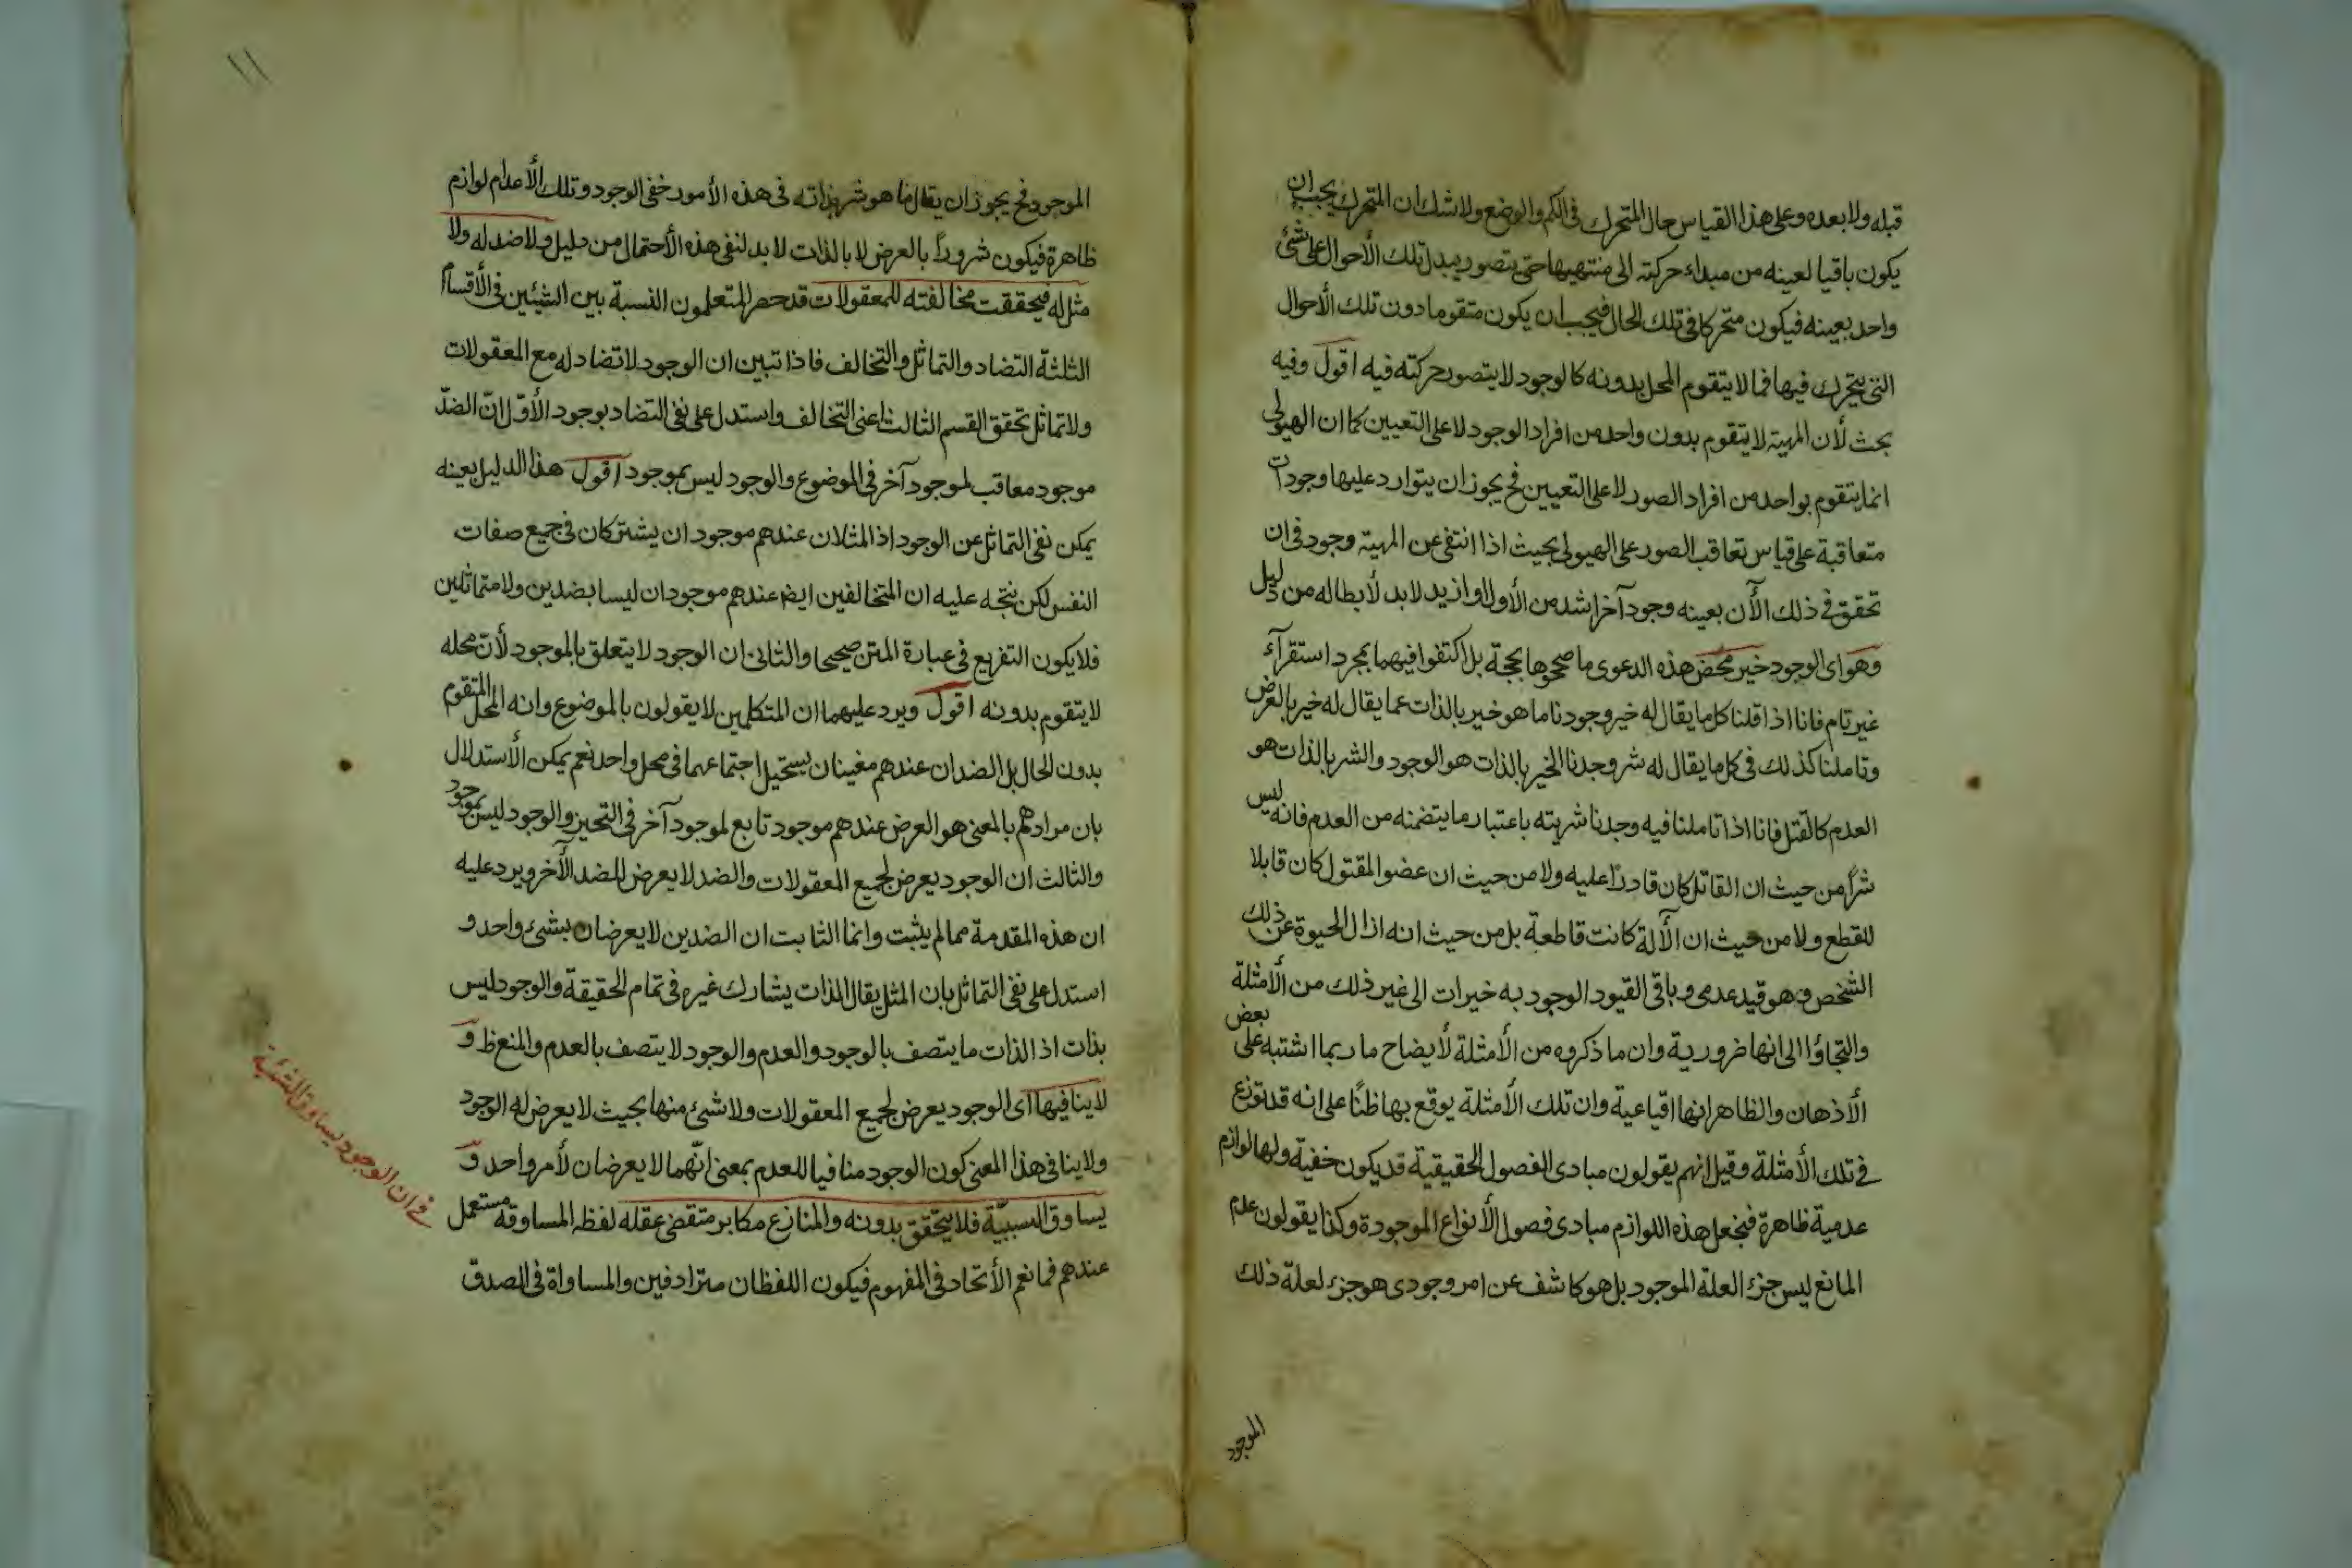 قبله ولا بعده وعلى هذا القياس حال المتحرك فى الكم والوضع ولا شك ان المتحرك يجب ان
يكون باقيا لعينه من مبداء حركته الى منتهيها حتى يتصور تبدل تلك الأحوال على شئ
واحد بعينه فيكون متحركا فى تلك الحال فيجب ان يكون متقوما دون تلك الأحوال
التى يتحرك فيها فما لا يتقوم المحل بدونه كالوجود لا يتصور حركته فيه اقول وفيه
بحث لأن المهية لا يتقوم بدون واحد من افراد الوجود لا على التعيين كما ان الهيولى
انما يتقوم بواحد من افراد الصور لا على التعيين فح يجوز ان يتوارد عليها وجودات
متعاقبة على قياس تعاقب الصور على الهيولى بحيث اذا انتفى عن المهية وجود فى ان
تحقق فى ذلك الأن بعينه وجود آخر اشد من الأول او ازيد لا بد لأبطاله من دليل
وهو اى الوجود خير محض هذه الدعوى ما صححوها بحجة بل اكتفوا فيهما بمجرد استقرآء
غير تام فانا اذا قلنا كل ما يقال له خير وجودنا ما هو خير بالذات عما يقال له خير بالعرض
وتاملنا كذلك فى كل ما يقال له شر وجدنا الخير بالذات هو الوجود والشر بالذات هو
العدم كالقتل فانا اذا تاملنا فيه وجدنا شريته باعتبار ما يتضمنه من العدم فانه ليس
شرًا من حيث ان القاتل كان قادرًا عليه ولا من حيث ان عضو المقتول كان قابلا
للقطع ولا من حيث ان الآلة كانت قاطعة بل من حيث انه ازال الحيوة عن ذلك
الشخص وهو قيد عدمى وباقى القيود الوجودية خيرات الى غير ذلك من الأمثلة
والتجاؤا الى انها ضرورية وان ما ذكروه من الأمثلة لأيضاح ما ربما اشتبه على بعض
الأذهان والظاهر انها اقناعية وان تلك الأمثلة يوقع بها ظنًا على انه قد توزع
فى تلك الأمثلة وقيل انهم يقولون مبادى الفصول الحقيقية قد يكون خفية ولها لوازم
عدمية ظاهرة فيجعل هذه اللوازم مبادى فصول الأنواع الموجودة وكذا يقولون عدم
المانع ليس جزء العلة الموجود بل هو كاشف عن امر وجودى هو جزء لعلة ذلك
الموجود
١١
الموجود فح يجوز ان يقال ما هو شر بذاته فى هذه الأمور خفى الوجود وتلك الأعدام لوازم
ظاهرة فيكون شرورًا بالعرض لا بالذات لا بد لنفى هذه الأحتمال من دليل ولا ضد له ولا
مثل له فيحققت مخالفته للمعقولات قد حصر المتعلمون النسبة بين الشيئين فى الأقسام
الثلثة التضاد والتماثل والتخالف فاذا تبين ان الوجود لا تضاد له مع المعقولات
ولا تماثل تحقق القسم الثالث اعنى التخالف واستدل على نفى التضاد بوجود الأول انّ الضدّ
موجود معاقب لموجود آخر فى الموضوع والوجود ليس بموجود اقول هذا الدليل بعينه
يمكن نفى التماثل عن الوجود اذ المثلان عندهم موجودان يشتركان فى جميع صفات
النفس لكن يتجه عليه ان المتخالفين ايض عندهم موجودان ليسا بضدين ولا متماثلين
فلا يكون التفريع فى عبارة المتن صحيحا والثانى ان الوجود لا يتعلق بالموجود لأنّ محله
لا يتقوم بدونه اقول ويرد عليهما ان المتكلمين لا يقولون بالموضوع وانه المحل المتقوم
بدون الحال بل الضدان عندهم معنيان يستحيل اجتماعهما فى محل واحد نعم يمكن الأستدلال
بان مرادهم بالمعنى هو العرض عندهم موجود تابع لموجود آخر فى التحيز والوجود ليس بموجود
والثالث ان الوجود يعرض لجميع المعقولات والضد لا يعرض للضد الآخر ويرد عليه
ان هذه المقدمة مما لم يثبت وانما الثابت ان الضدين لا يعرضان بشئ واحد و
استدل على نفى التماثل بان المثل يقال لذات يشارك غيره فى تمام الحقيقة والوجود ليس
بذات اذ الذات ما يتصف بالوجود والعدم والوجود لا يتصف بالعدم والمنع ظ وَ
لا ينافيها اى الوجود يعرض لجميع المعقولات ولا شئ منها بحيث لا يعرض له الوجود
ولا ينافى هذا المعنى كون الوجود منافيا للعدم بمعنى انّهما لا يعرضان لأمر واحد وَ
يساوق الشيئية فلا يتحقق بدونه والمنازع مكابر متقضى عقله لفظ المساوقة مستعمل
عندهم فما نعم الأتحاد فى المفهوم فيكون اللفظان مترادفين والمساواة فى الصدق
فى ان الوجود يساوق الشيئية